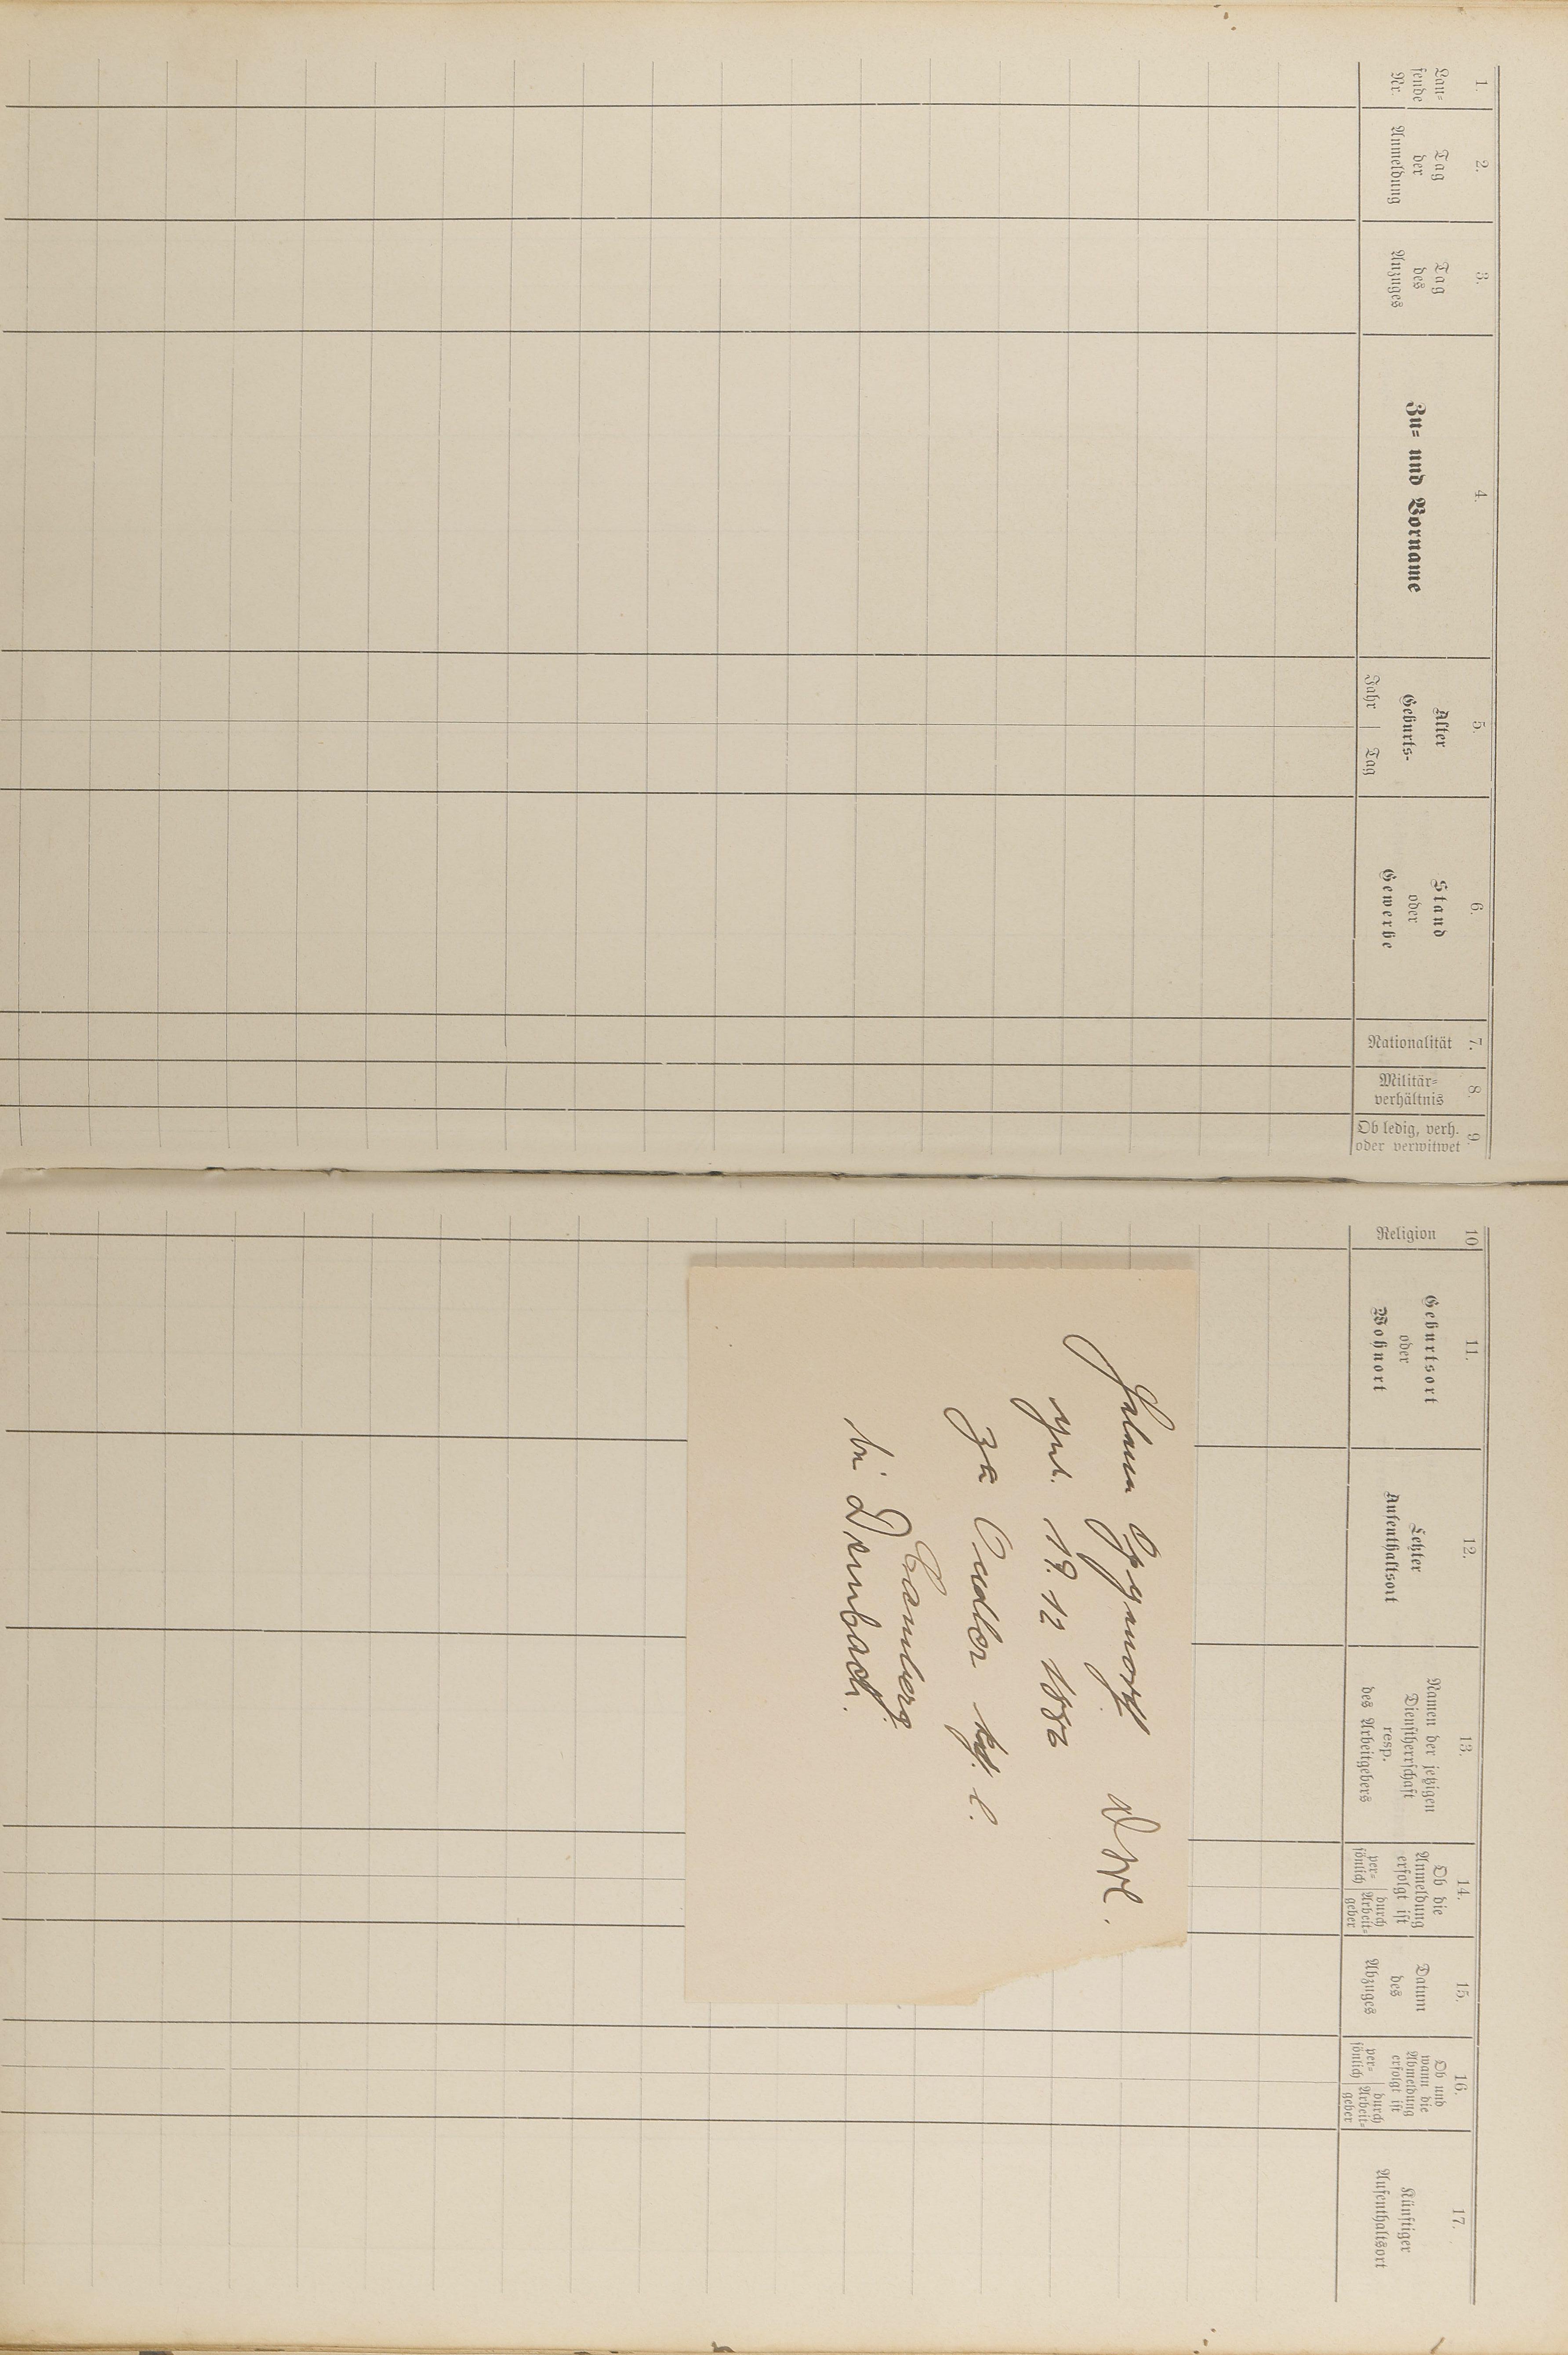 1.
Lau-
fende
Nr.
2.
Tag
der
Anmeldung
3.
Tag
des
Anzuges
4.
Zu- und Vorname
5.
Alter
Geburts-
Jahr
Tag
6.
Stand
oder
Gewerbe
7.
Nationalität
8.
Militär-
verhältnis
9.
Ob ledig, verh.
oder verwitwet
10
Religion
11.
Geburtsort
oder
Wohnort
12.
Letzter
Aufenthaltsort
13.
Namen der jetzigen
Dienstherrschaft
resp.
des Arbeitgebers
14.
Ob die
Anmeldung
erfolgt ist
per-
sönlich
durch
Arbeit-
geber
15.
Datum
des
Abzuges
16.
Ob und
wann die
Abmeldung
erfolgt ist
per-
sönlich
durch
Arbeit-
geber
17.
Künftiger
Aufenthaltsort
12
zu
Camberg
bei Dernbach.